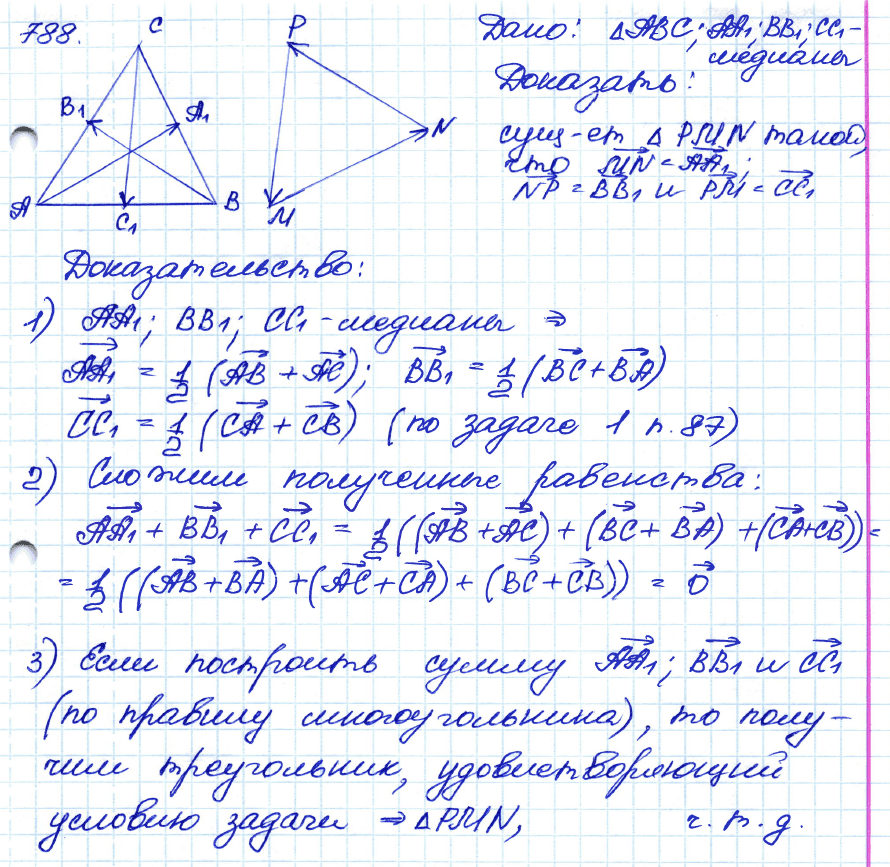 788.
C
B₁
A₁
A
C₁
B
P
N
M
Дано: △ABC; AA₁; BB₁; CC₁ –
медианы
Доказать:
сущ-ет △ PMN такой,
что MN⃗ = AA₁⃗;
NP⃗ = BB₁⃗ и PM⃗ = CC₁⃗
Доказательство:
1) AA₁; BB₁; CC₁ – медианы ⇒
AA₁⃗ = 1/2 (AB⃗ + AC⃗); BB₁⃗ = 1/2 (BC⃗ + BA⃗)
CC₁⃗ = 1/2 (CA⃗ + CB⃗) (по задаче 1 п. 87)
2) Сложим полученные равенства:
AA₁⃗ + BB₁⃗ + CC₁⃗ = 1/2 ((AB⃗ + AC⃗) + (BC⃗ + BA⃗) + (CA⃗ + CB⃗)) =
= 1/2 ((AB⃗ + BA⃗) + (AC⃗ + CA⃗) + (BC⃗ + CB⃗)) = 0⃗
3) Если построить сумму AA₁⃗; BB₁⃗ и CC₁⃗
(по правилу многоугольника), то полу-
чим треугольник, удовлетворяющий
условию задачи ⇒ △PMN,
ч. т. д.